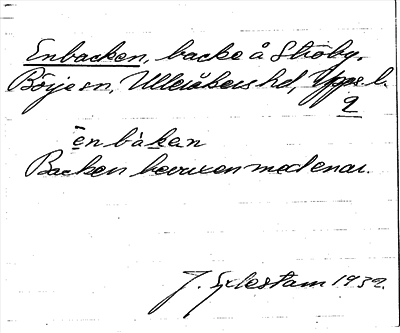 Enbacken, backe å Ströby.
Börje sn, Ulleråkers hd, Upps. l.
9
e̅n bàkan
Backen bevuxen med enar.
J. Sylestam 1932.